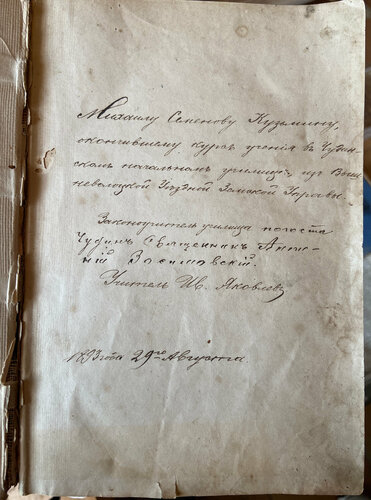 Михаилу Семенову Кузьмину,
окончившему курсъ ученія въ Чудин-
скомъ начальномъ училищѣ, изъ Выш-
неволоцкой Уѣздной Земской Управы.
Законоучитель училища погоста
Чудинъ Священникъ Анто-
ній
Учитель Ив. Яковлевъ
1893 года 29го Августа